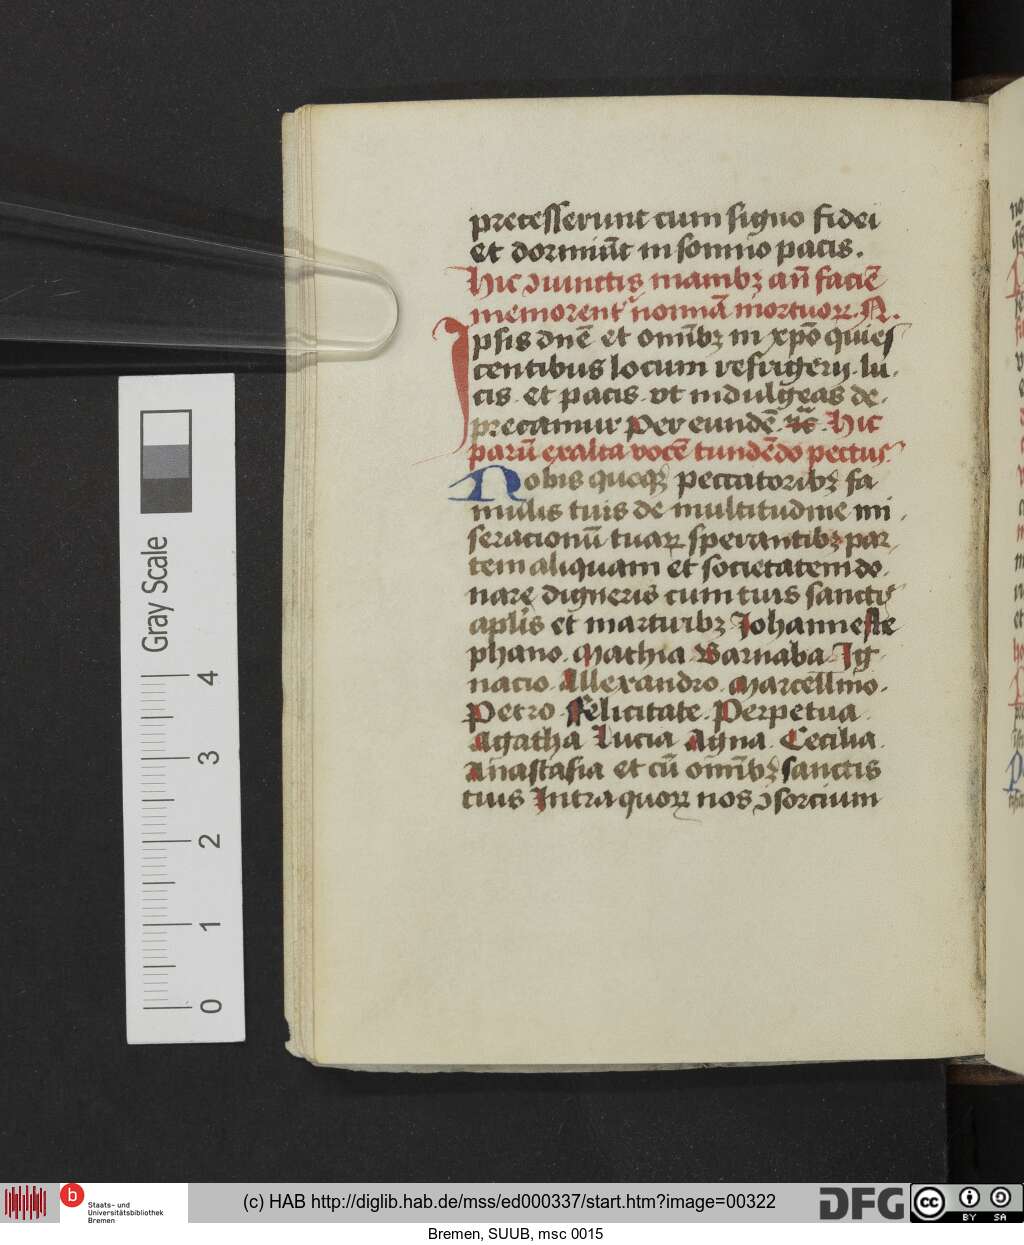 precesserunt cum signo fidei
et dormiūt in somno pacis.
Hic iunctis manibꝫ an̄ faciē
memorent noīnā mortuoꝝ. N.
Ipsis dn̄e et omībꝫ in xp̄o quies
centibus locum refrigerij. lu.
cis. et pacis. vt indulgeas de.
precamur Per eundē. Hic
parū exalta vocē tundēdo pectus
Nobis quoqꝫ peccatoribꝫ fa
mulis tuis de multitudine mi.
seracionū tuaꝝ sperantibꝫ par
tem aliquam et societatem do.
nare digneris cum tuis sanctis
aplis et martiribꝫ Johanne ste
phano. Mathia. Barnaba. Ig
nacio. Allexandro. Marcellino.
Petro. Felicitate. Perpetua.
Agatha Lucia Agna. Cecilia.
Anastasia et cū omībꝫ sanctis
tuis Intra quoꝝ nos ꝯsorcium
Gray Scale
4
3
2
1
0
b
Staats- und
Universitätsbibliothek
Bremen
(c) HAB http://diglib.hab.de/mss/ed000337/start.htm?image=00322
DFG
cc
BY SA
Bremen, SUUB, msc 0015